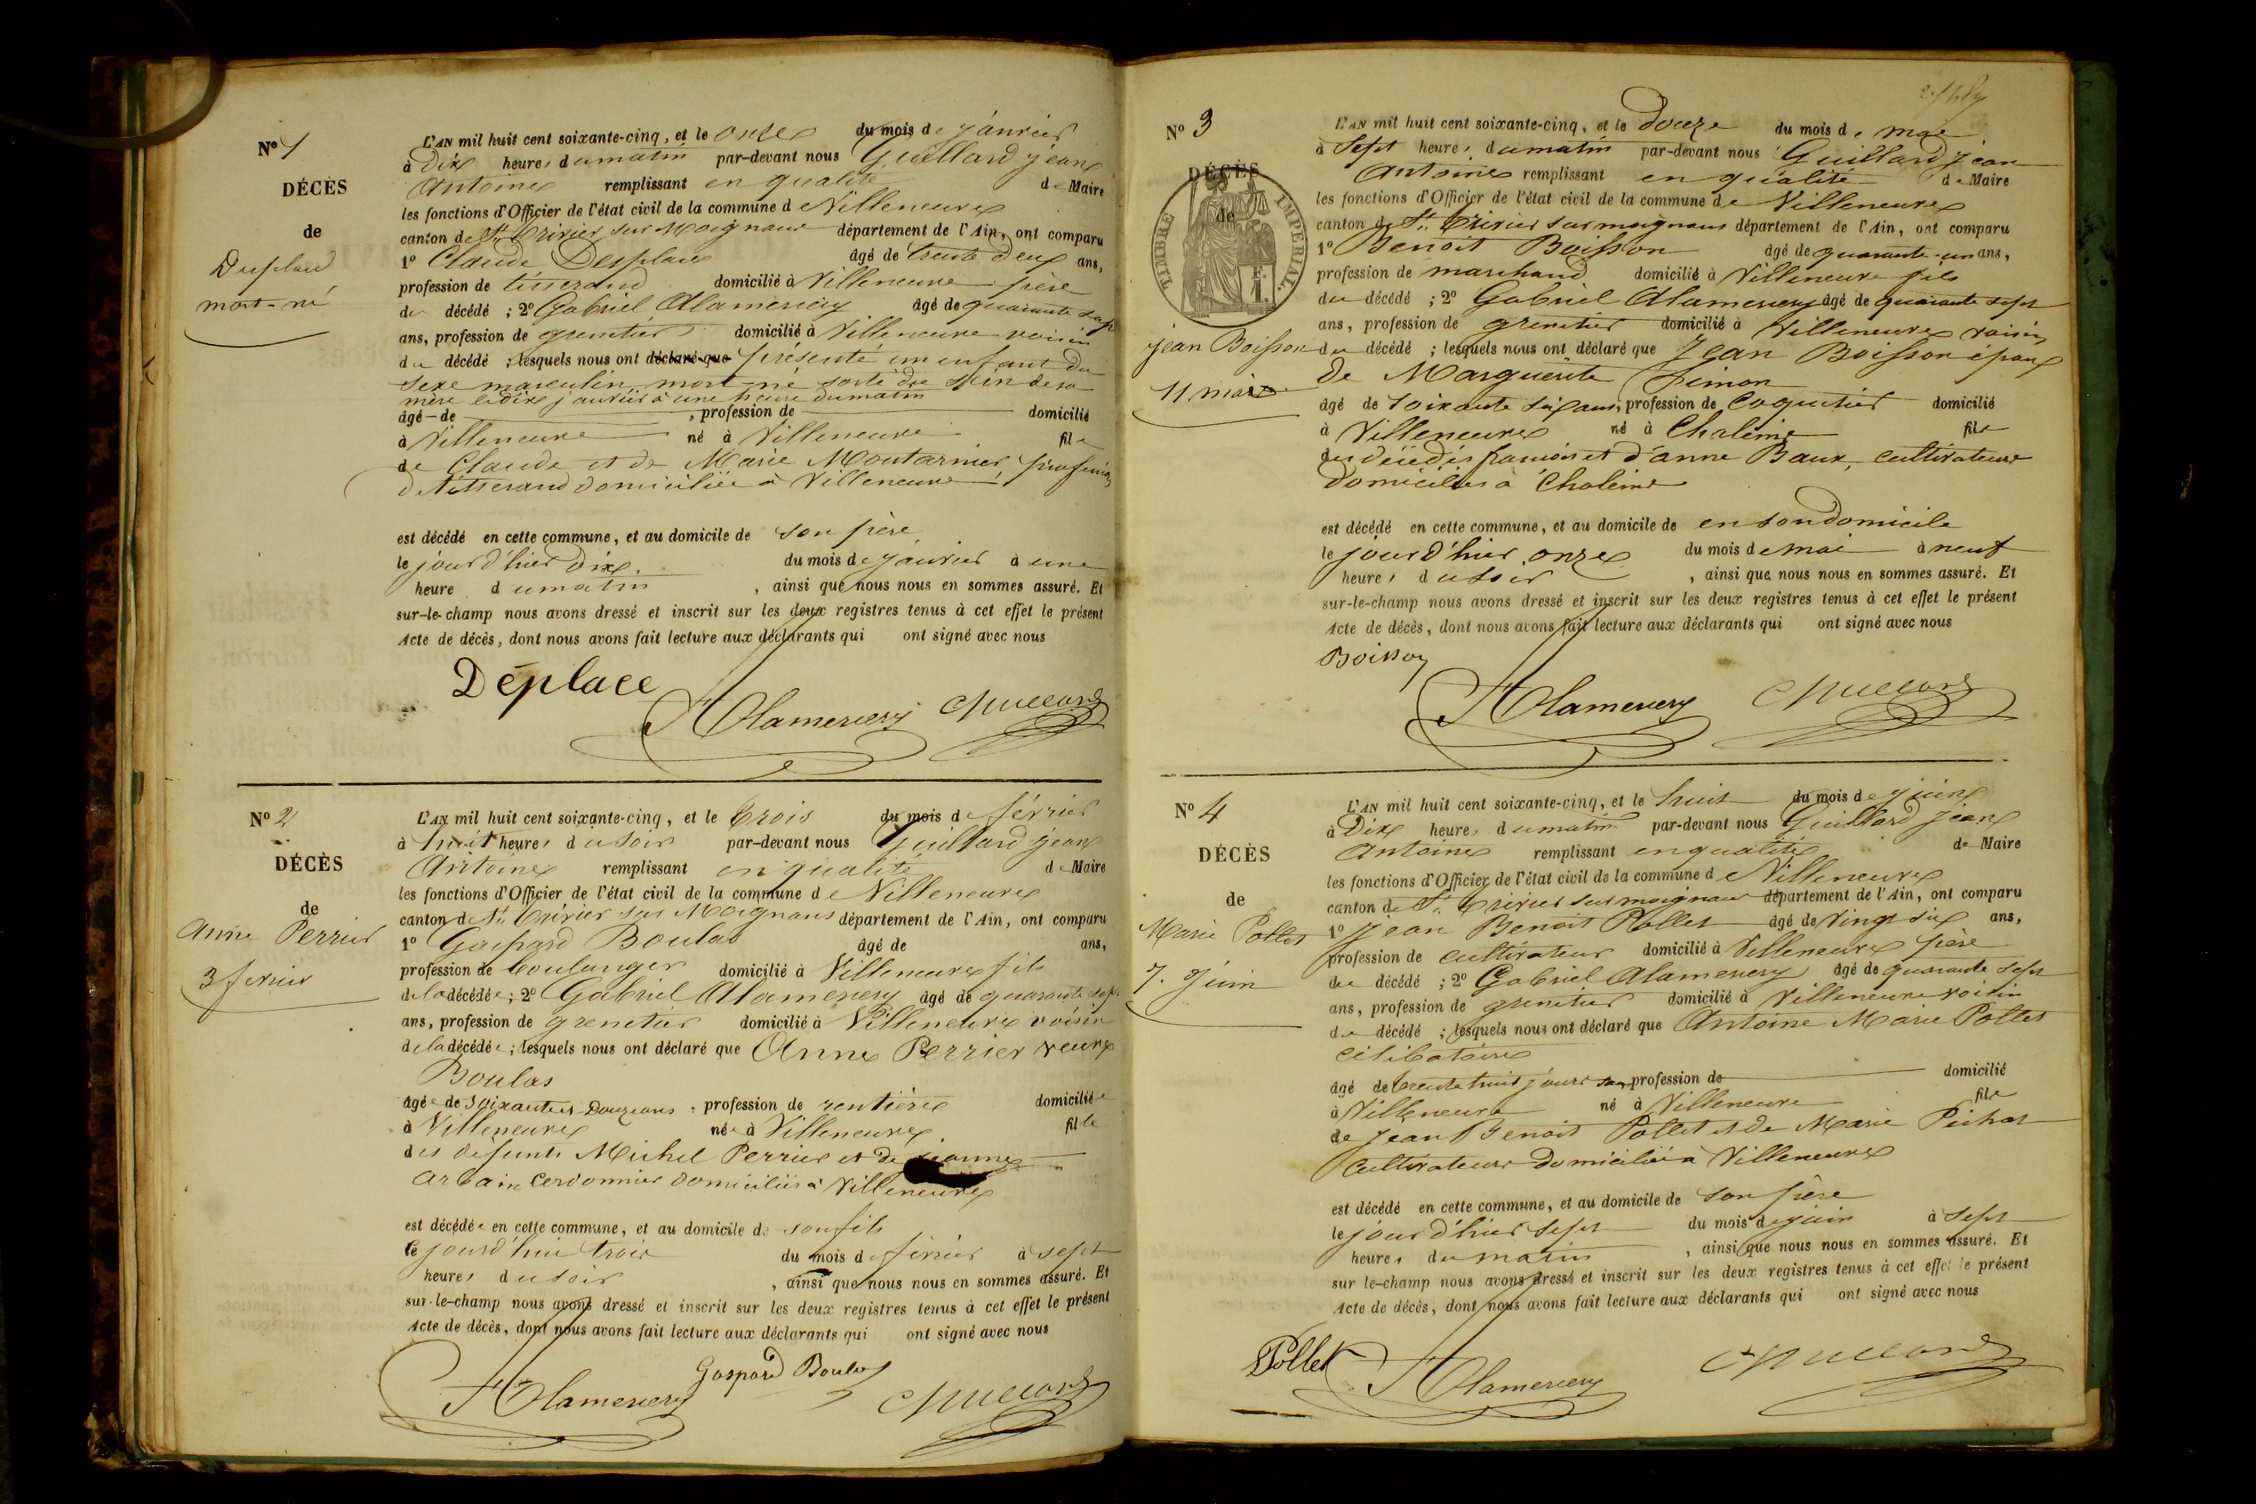 N° 1
DÉCÈS
de
Desplace
mort-né
L'AN mil huit cent soixante-cinq, et le onze du mois de janvier
à Dix heures du matin par-devant nous Guillard jean
Antoine remplissant en qualité de Maire
les fonctions d'Officier de l'état civil de la commune de Villeneuve
canton de St. Trivier sur Moignans département de l'Ain, ont comparu
1° Claude Desplace âgé de trente deux ans,
profession de tisserand domicilié à Villeneuve père
du décédé ; 2° Gabriel Alamercery âgé de quarante sept
ans, profession de grenetier domicilié à Villeneuve voisin
du décédé ; lesquels nous ont déclaré que présenté un enfant du
sexe masculin mort-né sorti du sein de sa
mère le dix janvier à une heure du matin
âgé de , profession de domicilié
à Villeneuve né à Villeneuve fils
de Claude et de Marie Moutarnier, profession
de tisserand domiciliés à Villeneuve
est décédé en cette commune, et au domicile de son père
le jour d'hier Dix du mois de janvier à une
heure du matin , ainsi que nous nous en sommes assuré. Et
sur-le-champ nous avons dressé et inscrit sur les deux registres tenus à cet effet le présent
Acte de décès, dont nous avons fait lecture aux déclarants qui ont signé avec nous
Déplace
Alamercery Guillard
N° 2
DÉCÈS
de
Anne Perrier
3 fevrier
L'AN mil huit cent soixante-cinq, et le trois du mois de février
à huit heures du soir par-devant nous Guillard jean
Antoine remplissant en qualité de Maire
les fonctions d'Officier de l'état civil de la commune de Villeneuve
canton de St. Trivier sur Moignans département de l'Ain, ont comparu
1° Gaspard Boulas âgé de ans,
profession de boulanger domicilié à Villeneuve fils
de la décédée ; 2° Gabriel Alamercery âgé de quarante sept
ans, profession de grenetier domicilié à Villeneuve voisin
de la décédée ; lesquels nous ont déclaré que Anne Perrier veuve
Boulas
âgée de soixante et Douze ans , profession de rentière domiciliée
à Villeneuve née à Villeneuve fille
des défunts Michel Perrier et de jeanne
cordonnier domiciliés à Villeneuve
est décédée en cette commune, et au domicile de son fils
le jourd'hui trois du mois de février à sept
heures du soir , ainsi que nous nous en sommes assuré. Et
sur-le-champ nous avons dressé et inscrit sur les deux registres tenus à cet effet le présent
Acte de décès, dont nous avons fait lecture aux déclarants qui ont signé avec nous
Gaspard Boulas
Alamercery Guillard
N° 3
DÉCÈS
de
TIMBRE IMPÉRIAL
jean Boisson
11 mai
L'AN mil huit cent soixante-cinq, et le douze du mois de mai
à Sept heures du matin par-devant nous Guillard jean
Antoine remplissant en qualité de Maire
les fonctions d'Officier de l'état civil de la commune de Villeneuve
canton de St. Trivier sur moignans département de l'Ain, ont comparu
1° Benoit Boisson âgé de quarante-un ans,
profession de marchand domicilié à Villeneuve fils
du décédé ; 2° Gabriel Alamercery âgé de quarante sept
ans, profession de grenetier domicilié à Villeneuve voisin
du décédé ; lesquels nous ont déclaré que Jean Boisson époux
De Marguerite Simon
âgé de soixante six ans, profession de Coquetier domicilié
à Villeneuve né à Chaleins fils
des décédés françois et d'anne Baux, cultivateurs
domiciliés à Chaleins
est décédé en cette commune, et au domicile de en son domicile
le jour d'hier onze du mois de mai à neuf
heures du soir , ainsi que nous nous en sommes assuré. Et
sur-le-champ nous avons dressé et inscrit sur les deux registres tenus à cet effet le présent
Acte de décès, dont nous avons fait lecture aux déclarants qui ont signé avec nous
Boisson
Alamercery Guillard
N° 4
DÉCÈS
de
Marie Pollet
7. Juin
L'AN mil huit cent soixante-cinq, et le huit du mois de juin
à Dix heures du matin par-devant nous Guillard jean
Antoine remplissant en qualité de Maire
les fonctions d'Officier de l'état civil de la commune de Villeneuve
canton de St. Trivier sur moignans département de l'Ain, ont comparu
1° Jean Benoit Pollet âgé de vingt six ans,
profession de cultivateur domicilié à Villeneuve père
du décédé ; 2° Gabriel Alamercery âgé de quarante sept
ans, profession de grenetier domicilié à Villeneuve voisin
du décédé ; lesquels nous ont déclaré que Antoine Marie Pollet
célibataire
âgé de trente huit jours ans, profession de domicilié
à Villeneuve né à Villeneuve fils
de Jean Benoit Pollet et de Marie Pichat
Cultivateurs domiciliés à Villeneuve
est décédé en cette commune, et au domicile de son père
le jour d'hier sept du mois de juin à sept
heures du matin , ainsi que nous nous en sommes assuré. Et
sur le-champ nous avons dressé et inscrit sur les deux registres tenus à cet effet le présent
Acte de décès, dont nous avons fait lecture aux déclarants qui ont signé avec nous
Pollet Alamercery Guillard